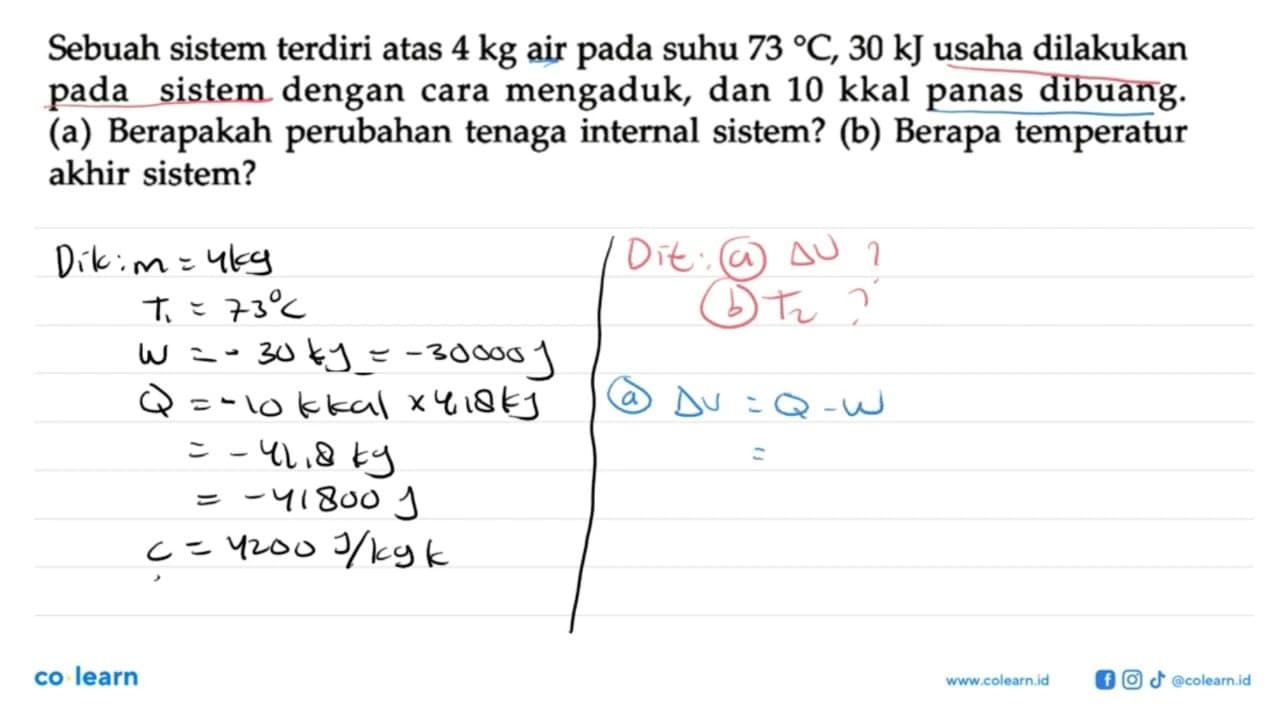 Sebuah sistem terdiri atas 4 kg air pada suhu 73 °C, 30 kJ usaha dilakukan
pada sistem dengan cara mengaduk, dan 10 kkal panas dibuang.
(a) Berapakah perubahan tenaga internal sistem? (b) Berapa temperatur
akhir sistem?
Dik: m = 4kg
T₁ = 73°C
W = - 30 kJ = -30000 J
Q = -10 kkal x 4,18 kJ
= -41,8 kJ
= -41800 J
c = 4200 J/kg k
Dit: (a) ΔU ?
(b) T₂ ?
(a) ΔU = Q - W
=
co learn
www.colearn.id
@colearn.id